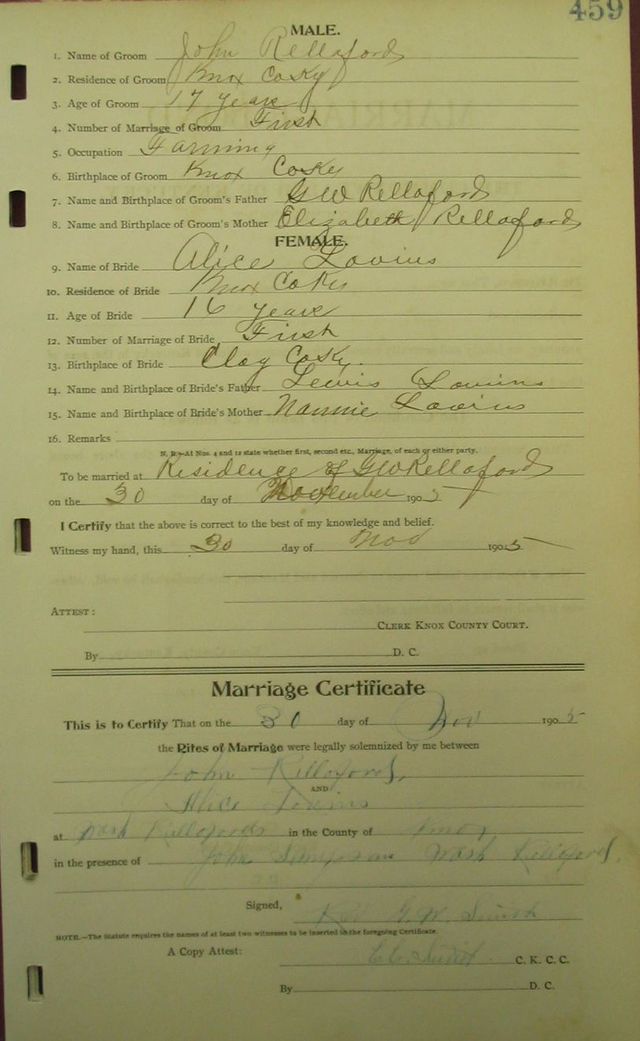 459
MALE.
1. Name of Groom John Rellaford
2. Residence of Groom Knox Co Ky
3. Age of Groom 17 years
4. Number of Marriage of Groom First
5. Occupation Farming
6. Birthplace of Groom Knox Co Ky
7. Name and Birthplace of Groom's Father G W Rellaford
8. Name and Birthplace of Groom's Mother Elizabeth Rellaford
FEMALE.
9. Name of Bride Alice Lovins
10. Residence of Bride Knox Co Ky
11. Age of Bride 16 years
12. Number of Marriage of Bride First
13. Birthplace of Bride Clay Co Ky
14. Name and Birthplace of Bride's Father Lewis Lovins
15. Name and Birthplace of Bride's Mother Nannie Lovins
16. Remarks
N. B.—At Nos. 4 and 12 state whether first, second etc., Marriage, of each or either party.
To be married at Residence of G W Rellaford
on the 30 day of November 1905
I Certify that the above is correct to the best of my knowledge and belief.
Witness my hand, this 30 day of Nov 1905
ATTEST:
CLERK KNOX COUNTY COURT.
By D. C.
Marriage Certificate
This is to Certify That on the 30 day of Nov 1905
the Rites of Marriage were legally solemnized by me between
John Rellaford,
AND
Alice Lovins
at Wash Rellafords in the County of Knox
in the presence of John Simpson Wash Rellaford.
Signed, Rev G. W. Smith
NOTE.—The Statute requires the names of at least two witnesses to be inserted in the foregoing Certificate.
A Copy Attest: Smith C. K. C. C.
By D. C.